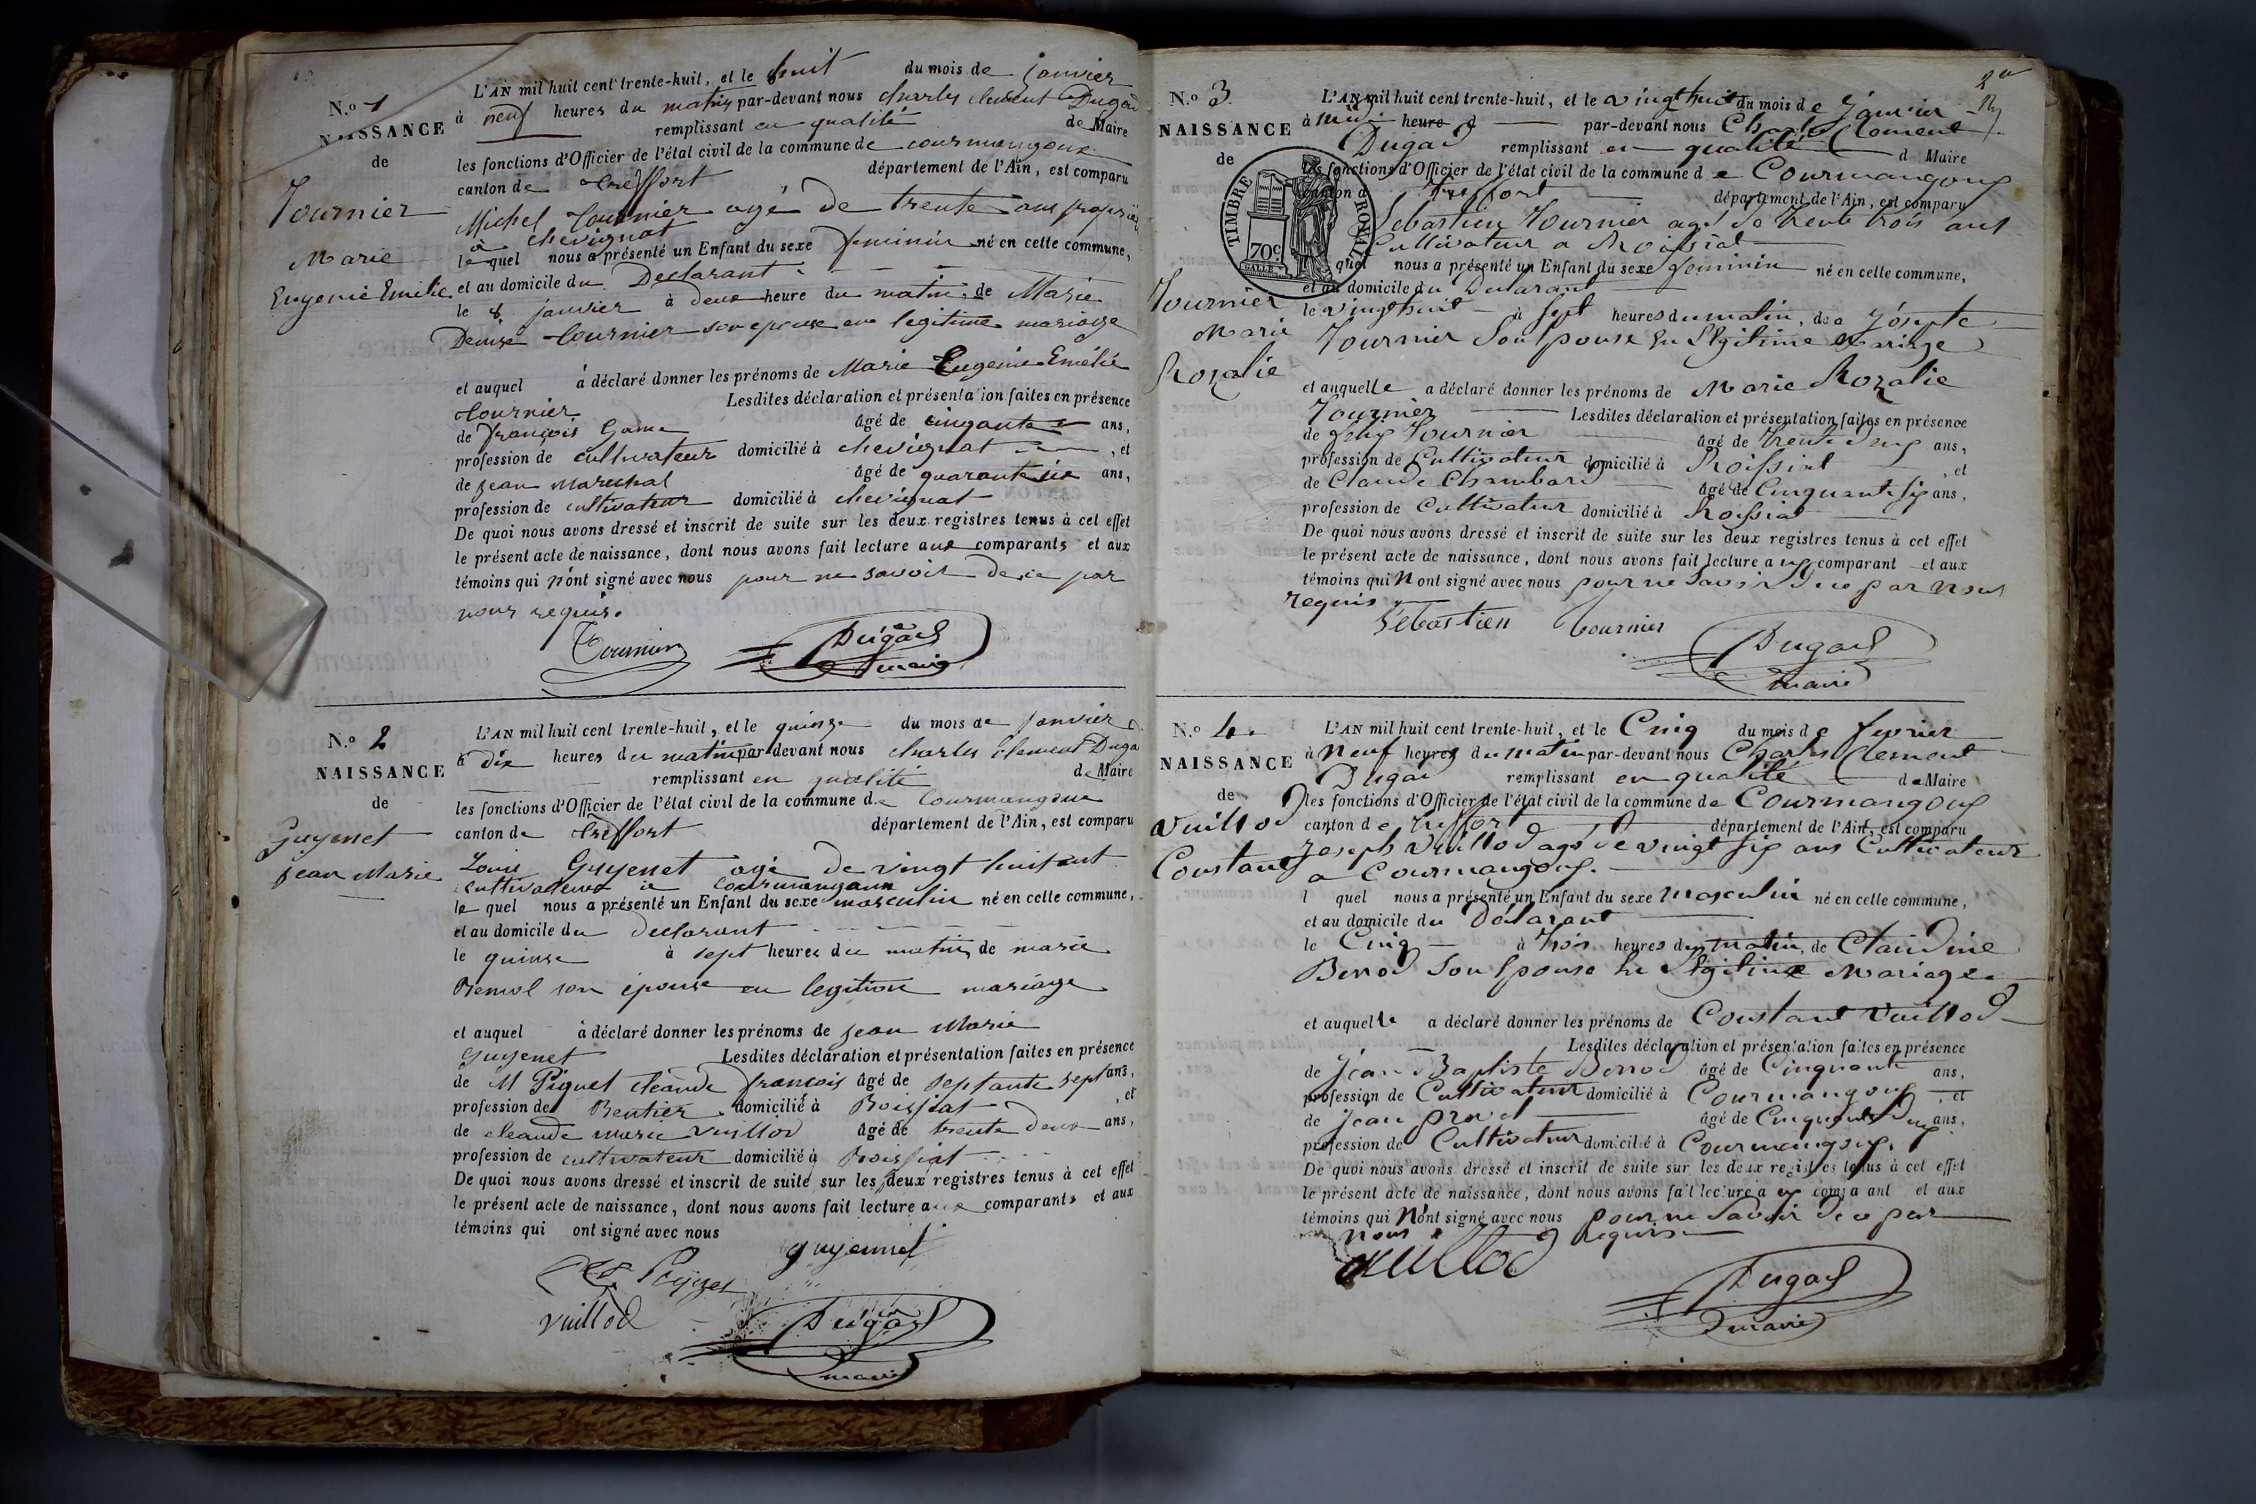 N.o 1
NAISSANCE
de
Tournier
Marie
Eugenie Emelie
L'AN mil huit cent trente-huit, et le huit du mois de janvier
à neuf heures du matin par-devant nous charles clement Dugad
remplissant en qualité de Maire
les fonctions d'Officier de l'état civil de la commune de courmangoux
canton de treffort département de l'Ain, est comparu
Michel tournier agé de trente ans propriétaire
à chevignat
le quel nous a présenté un Enfant du sexe feminin né en cette commune,
et au domicile du Declarant
le 8 janvier à deux heure du matin, de Marie
Denise tournier son epouse en legitime mariage
et auquel à déclaré donner les prénoms de Marie Eugenie Emélie
tournier Lesdites déclaration et présentation faites en présence
de françois Gama âgé de cinquante ans,
profession de cultivateur domicilié à chevignat, et
de jean marechal âgé de quarante six ans,
profession de cultivateur domicilié à chevignat
De quoi nous avons dressé et inscrit de suite sur les deux registres tenus à cet effet
le présent acte de naissance, dont nous avons fait lecture aux comparants et aux
témoins qui n'ont signé avec nous pour ne savoir de ce par
nous requis.
Tournier Dugad
maire
N.o 2
NAISSANCE
de
Guyenet
jean Marie
L'AN mil huit cent trente-huit, et le quinze du mois de janvier
à dix heures du matin par-devant nous charles clement Dugad
remplissant en qualité de Maire
les fonctions d'Officier de l'état civil de la commune de Courmangoux
canton de treffort département de l'Ain, est comparu
Louis Guyenet agé de vingt huit ant
cultivateur à courmangoux
le quel nous a présenté un Enfant du sexe masculin né en cette commune,
et au domicile du declarant
le quinse à sept heures du matin, de marie
son épouse en legitime mariage
et auquel à déclaré donner les prénoms de jean Marie
guyenet Lesdites déclaration et présentation faites en présence
de M Piquet cleaude françois âgé de septante sept ans,
profession de Rentier domicilié à Roissiat, et
de cleaude marie vuillod âgé de trente deux ans,
profession de cultivateur domicilié à Roissiat
De quoi nous avons dressé et inscrit de suite sur les deux registres tenus à cet effet
le présent acte de naissance, dont nous avons fait lecture aux comparants et aux
témoins qui ont signé avec nous
guyennet
vuillod Dugad
maire
2e
N.o 3
NAISSANCE
de
TIMBRE ROYAL
70c
Tournier
Marie
Rozalie
L'AN mil huit cent trente-huit, et le vingt huit du mois de Janvier
à midi heure d par-devant nous Charles Clement
Dugad remplissant en qualité d Maire
les fonctions d'Officier de l'état civil de la commune de Courmangoux
canton d Treffort département de l'Ain, est comparu
Sebastien Tournier agé de trente trois ans
Cultivateur a Roissiat
quel nous a présenté un Enfant du sexe feminin né en cette commune,
et au domicile du Déclarant
le vingt huit à sept heures du matin, de Josepte
Tournier Son Epouse En Légitime Mariage
et auquelle a déclaré donner les prénoms de Marie Rozalie
Tournier Lesdites déclaration et présentation faites en présence
de felix Tournier âgé de trente deux ans,
profession de Cultivateur domicilié à Roissiat, et
de Claude Chambard âgé de Cinquante six ans,
profession de Cultivateur domicilié à Roissiat
De quoi nous avons dressé et inscrit de suite sur les deux registres tenus à cet effet
le présent acte de naissance, dont nous avons fait lecture aux comparant et aux
témoins qui N ont signé avec nous pour ne Savoir de ce par Nous
requis
Sebastien tournier Dugad
maire
N.o 4
NAISSANCE
de
Vuillod
Constant
L'AN mil huit cent trente-huit, et le Cinq du mois de fevrier
à Neuf heures du matin par-devant nous Charles Clement
Dugad remplissant en qualité de Maire
les fonctions d'Officier de l'état civil de la commune de Courmangoux
canton de treffort département de l'Ain, est comparu
Joseph Vuillod agé de vingt six ans Cultivateur
a Courmangoux.
l quel nous a présenté un Enfant du sexe Masculin né en cette commune,
et au domicile du Déclarant
le Cinq à trois heures du matin, de Claudine
Berrod Son Epouse En Légitime Mariage
et auquelle a déclaré donner les prénoms de Constant Vuillod
Lesdites déclaration et présentation faites en présence
de Jean Baptiste Berrod âgé de Cinquante ans,
profession de Cultivateur domicilié à Courmangoux, et
de Jean prost âgé de Cinquante Deux ans,
profession de Cultivateur domicilié à Courmangoux.
De quoi nous avons dressé et inscrit de suite sur les deux registres tenus à cet effet
le présent acte de naissance, dont nous avons fait lecture aux comparant et aux
témoins qui N'ont signé avec nous pour ne Savoir de ce par
nous Requis
Vuillod
Dugad
maire